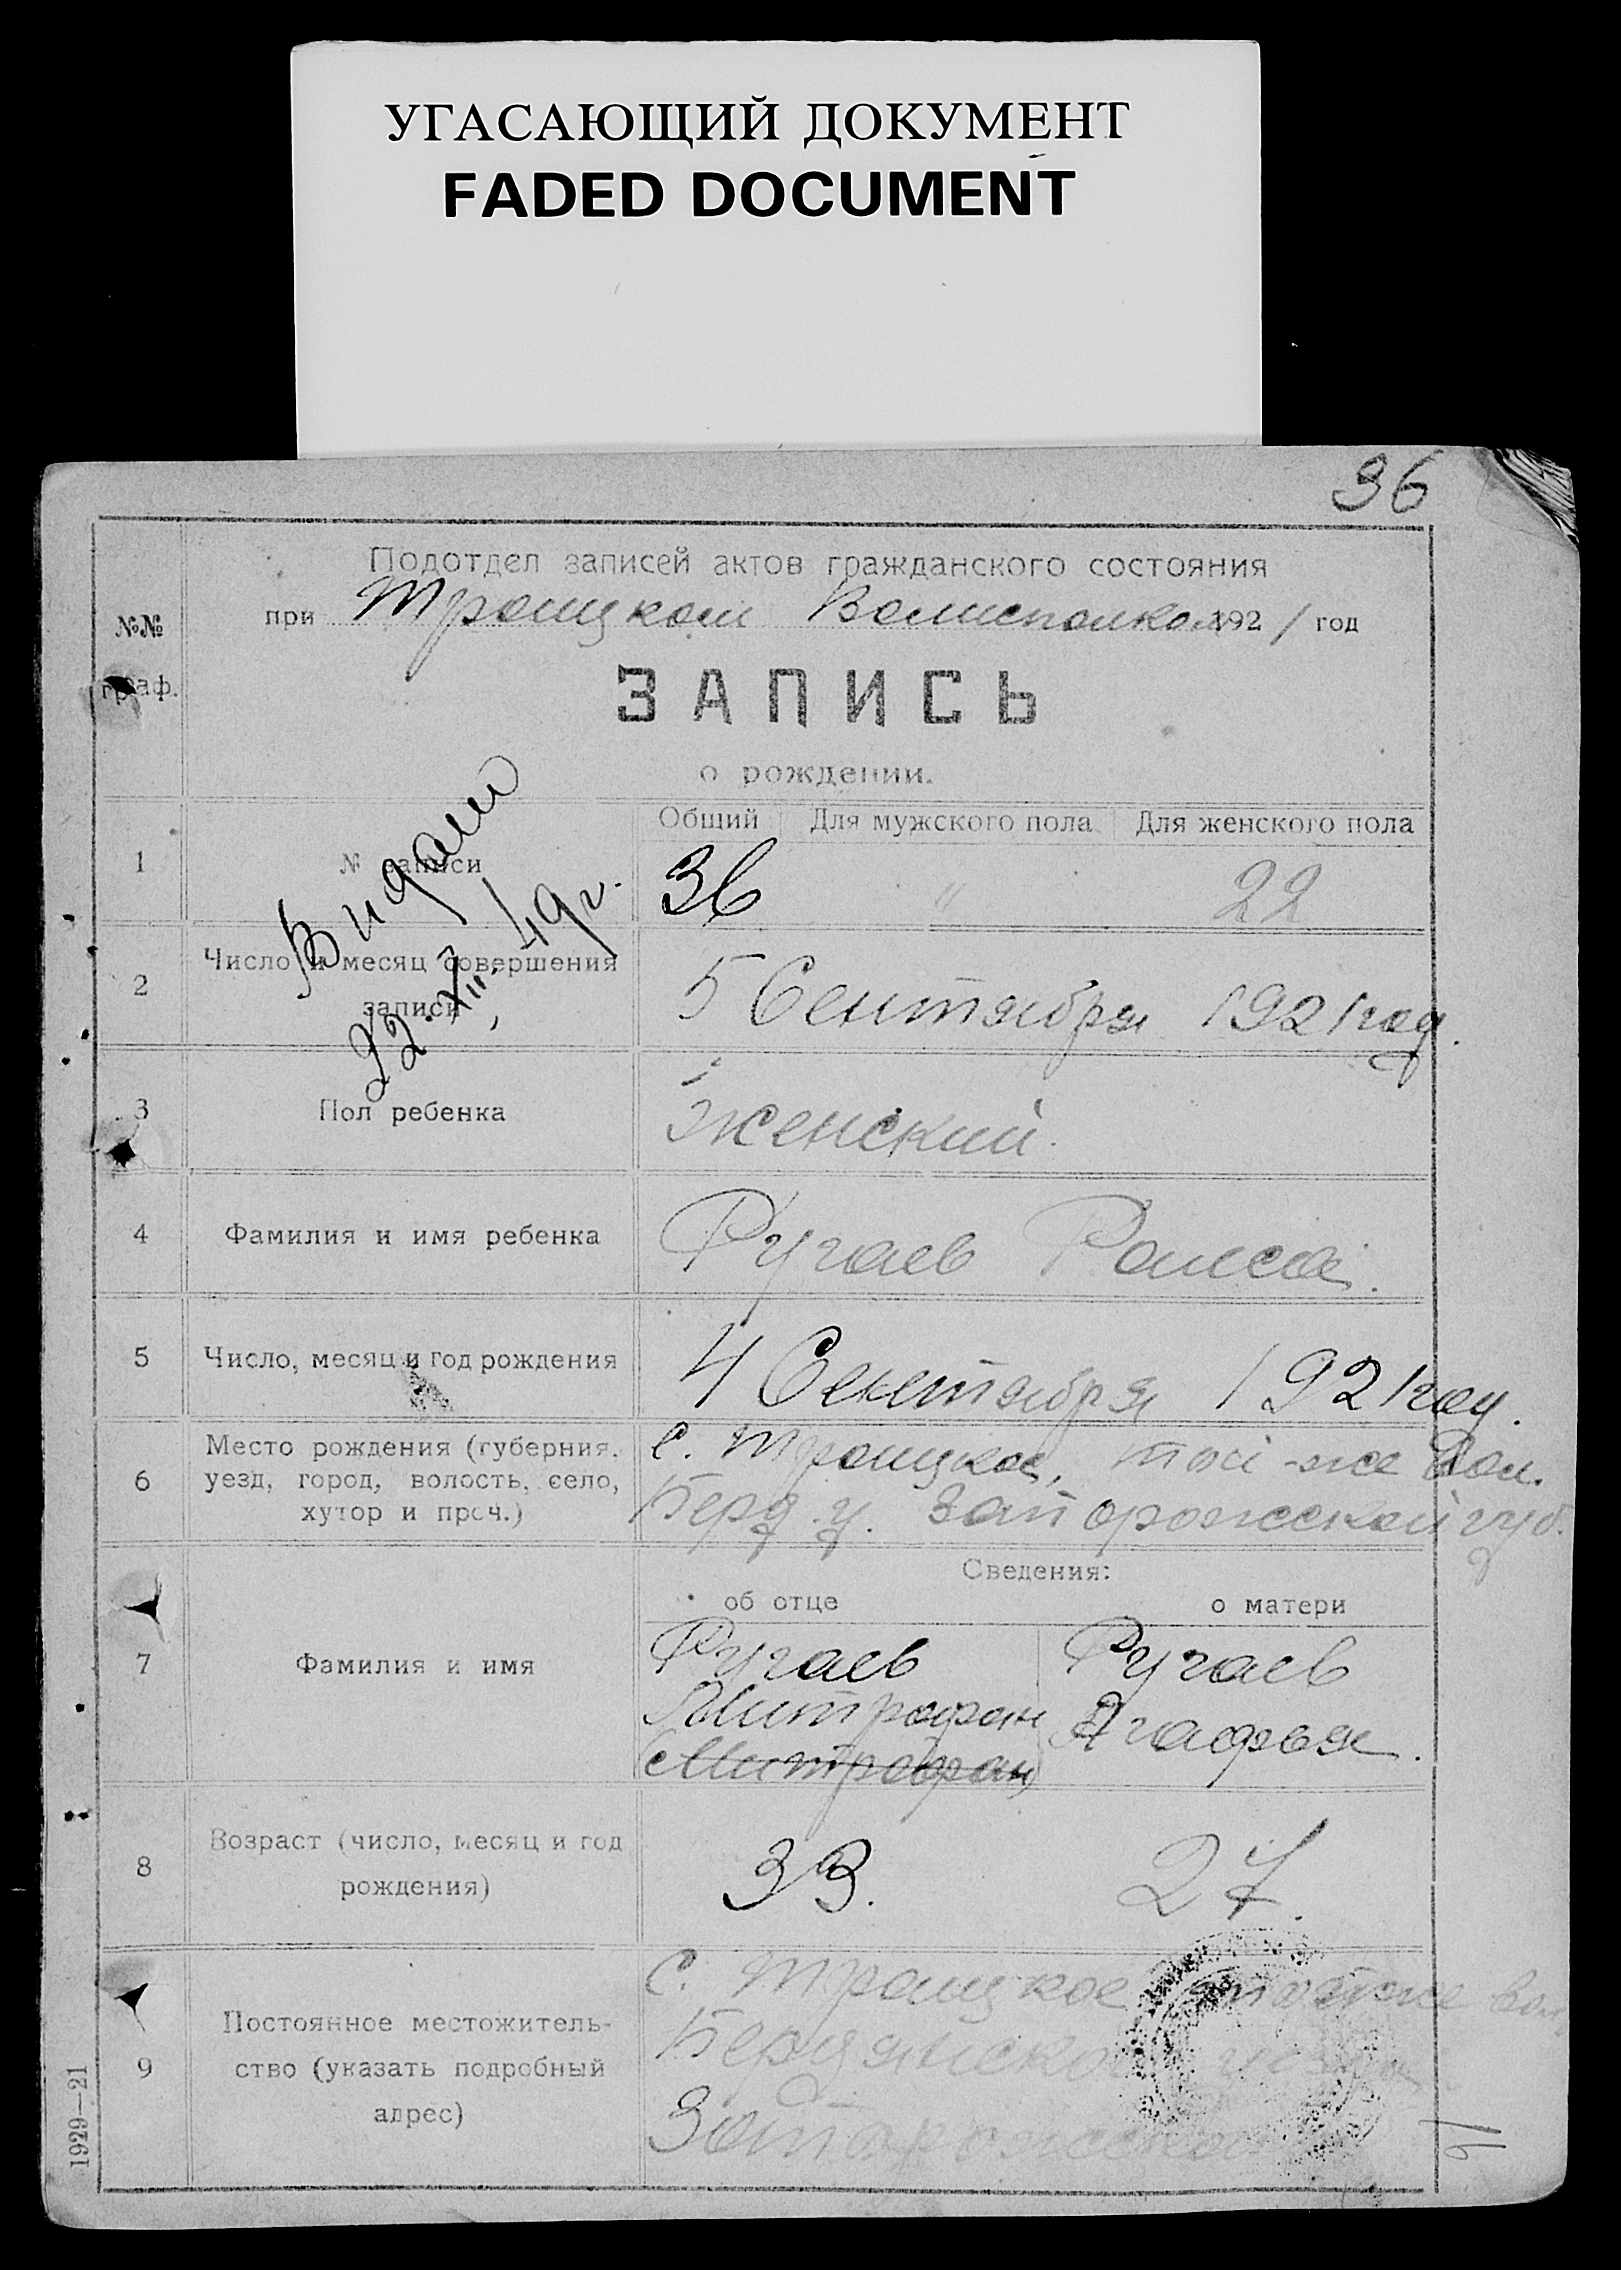 УГАСАЮЩИЙ ДОКУМЕНТ
FADED DOCUMENT
36
Подотдел записей актов гражданского состояния
№№ граф.
при Троицком Волисполком 1921 год
ЗАПИСЬ
о рождении.
Общий Для мужского пола Для женского пола
1 № записи 36 " 22
Видано
22.XII.49г.
2 Число и месяц совершения
записи
5 Сентября 1921 год.
3 Пол ребенка женский.
4 Фамилия и имя ребенка Ругаев Раиса.
5 Число, месяц и год рождения 4 Сентября 1921 год.
6 Место рождения (губерния,
уезд, город, волость, село,
хутор и проч.)
с. Троицкое, той-же Вол.
Берд. у. Запорожской губ.
Сведения:
об отце о матери
7 Фамилия и имя
Ругаев Ругаев
Митрофан Агафья.
(Митрофан)
8 Возраст (число, месяц и год
рождения)
33. 27.
9 Постоянное местожитель-
ство (указать подробный
адрес)
С. Троицкое той-же вол.
Бердянского уезда
Запорожской
1929—21